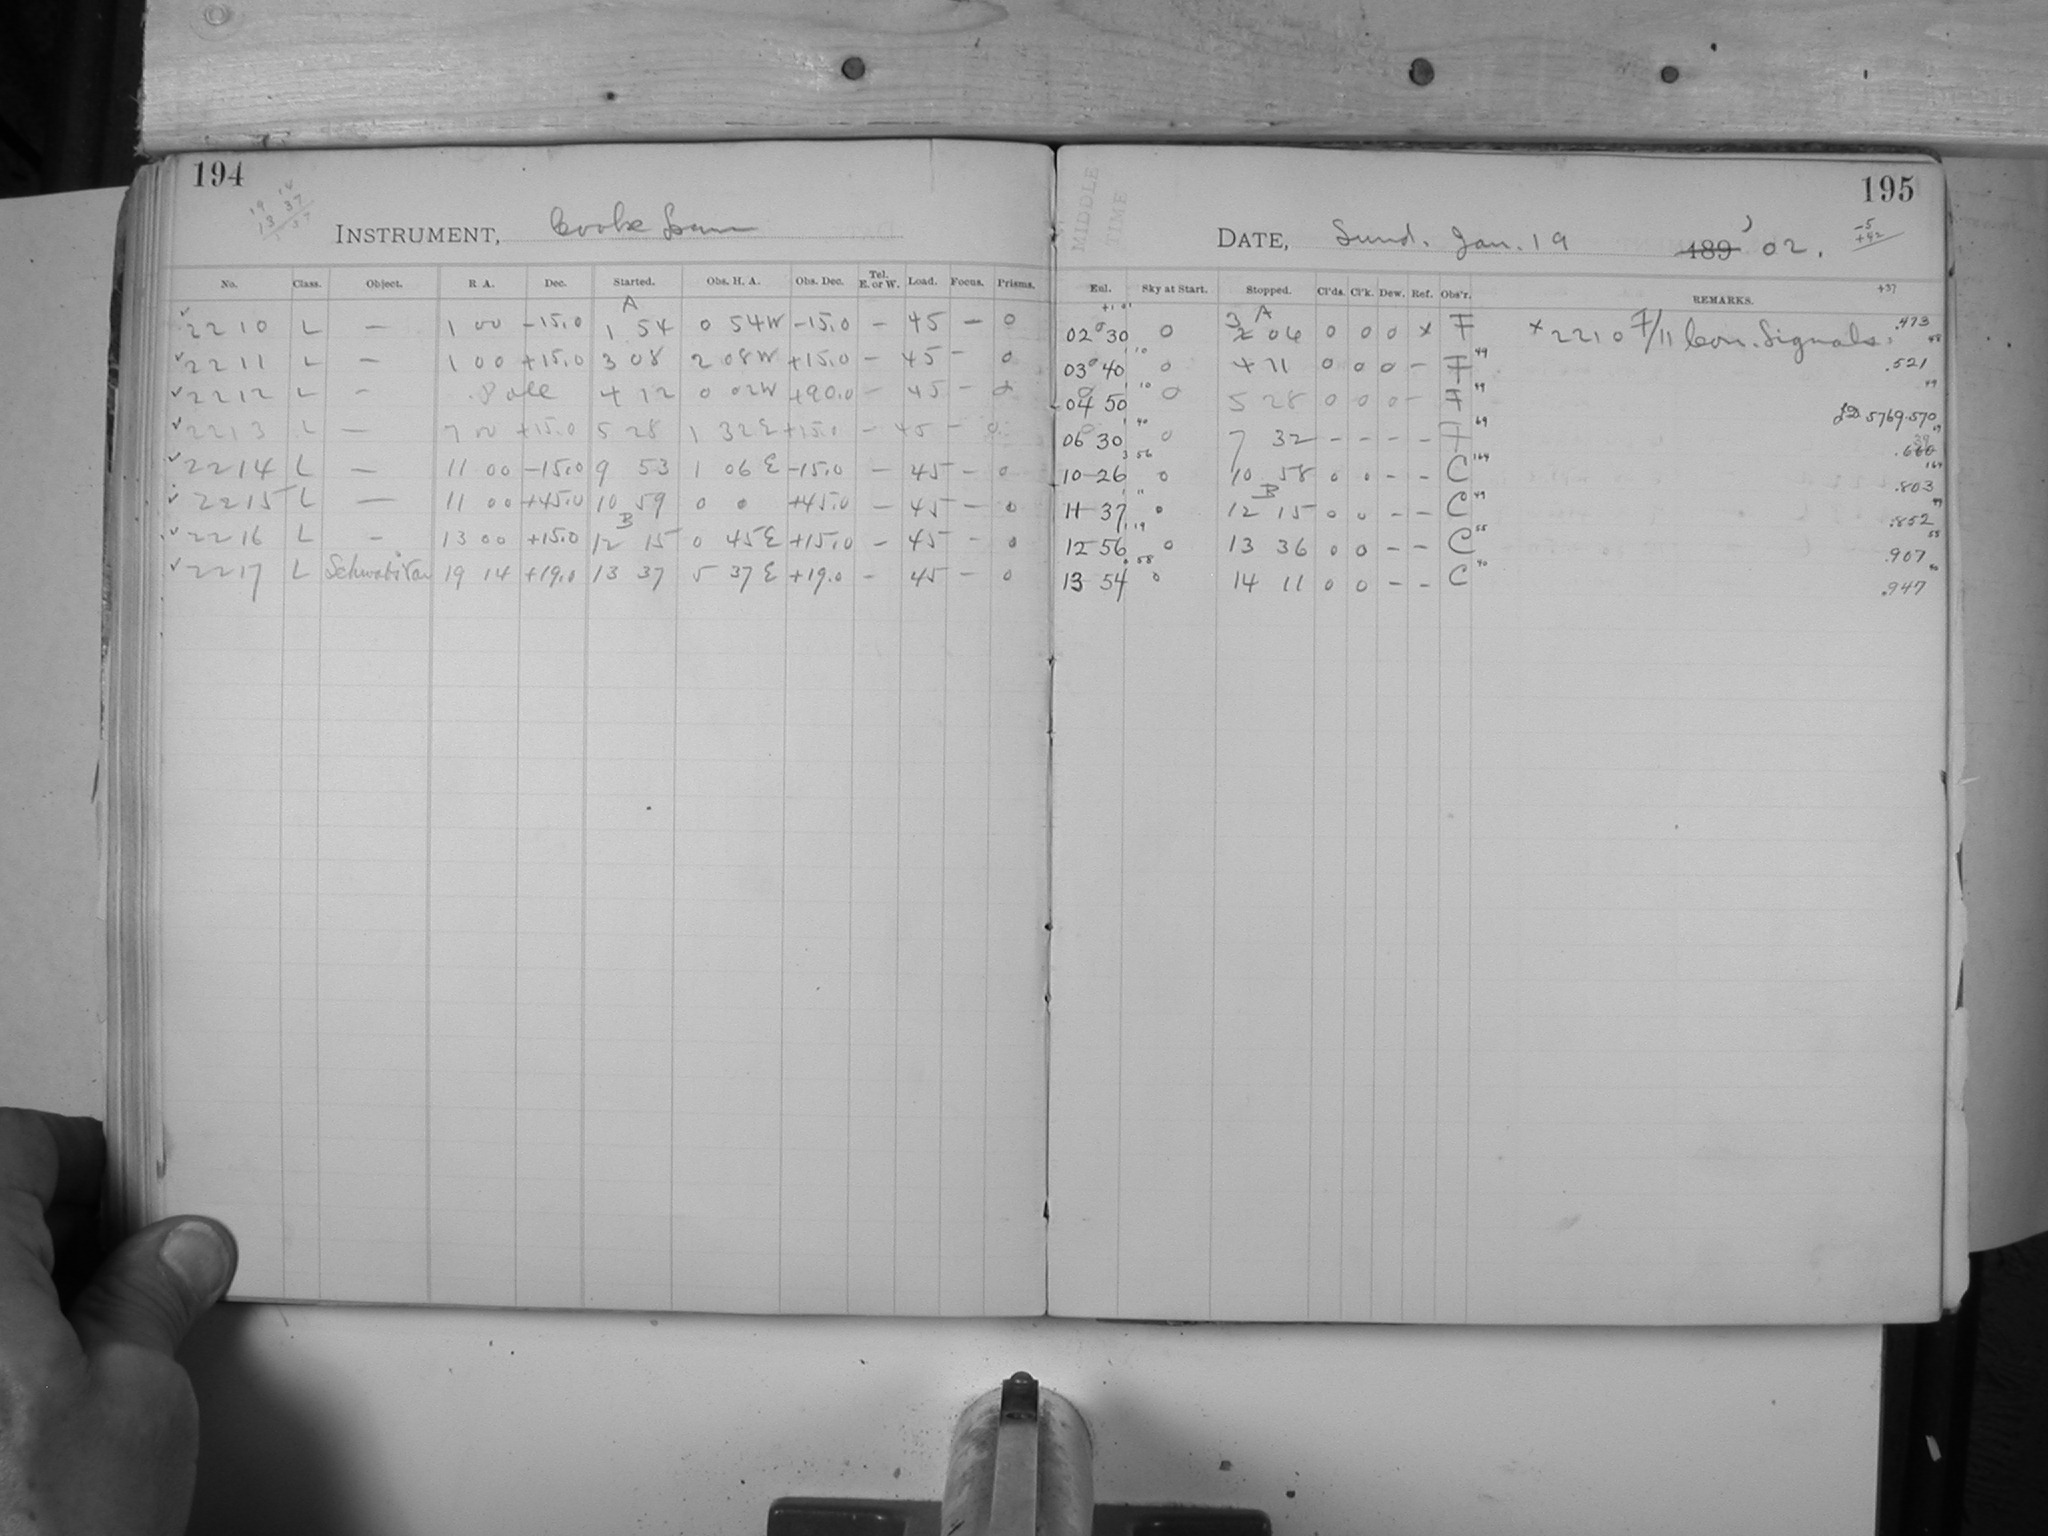 194
19 14
13 37
INSTRUMENT, Cooke
No. Class. Object. R A. Dec. Started. Obs. H. A. Obs. Dec. Tel. E. or W. Load. Focus. Prisms.
A
2210 L — 1 00 -15.0 1 54 0 54W -15.0 — 45 — 0
2211 L — 1 00 +15.0 3 08 2 08W +15.0 — 45 — 0
2212 L — Pole 4 12 0 02W +90.0 — 45 — 0
2213 L — 7 00 +15.0 5 28 1 32E +15.0 — 45 — 0
2214 L — 11 00 -15.0 9 53 1 06E -15.0 — 45 — 0
2215 L — 11 00 +45.0 10 59 0 0 +45.0 — 45 — 0
B
2216 L — 13 00 +15.0 12 15 0 45E +15.0 — 45 — 0
2217 L 19 14 +19.0 13 37 5 37E +19.0 — 45 — 0
195
MIDDLE TIME
DATE, Sund. Jan. 19 189 '02.
-5
+42
Enl. Sky at Start. Stopped. Cl'ds. Cl'k. Dew. Ref. Obs'r. REMARKS. +37
A
02 30 0 3 06 0 0 0 x F x 2210 F/11 Con. Signals. .473
03 40 0 4 11 0 0 0 — F 49 .521
04 50 0 5 28 0 0 0 — F 49 JD 5769.570
06 30 0 7 32 — — — — F 69 .39
10 26 0 10 58 0 0 — — C 164 .803
B
11 37 0 12 15 0 0 — — C 49 .852
12 56 0 13 36 0 0 — — C 55 .907
13 54 0 14 11 0 0 — — C 40 .947